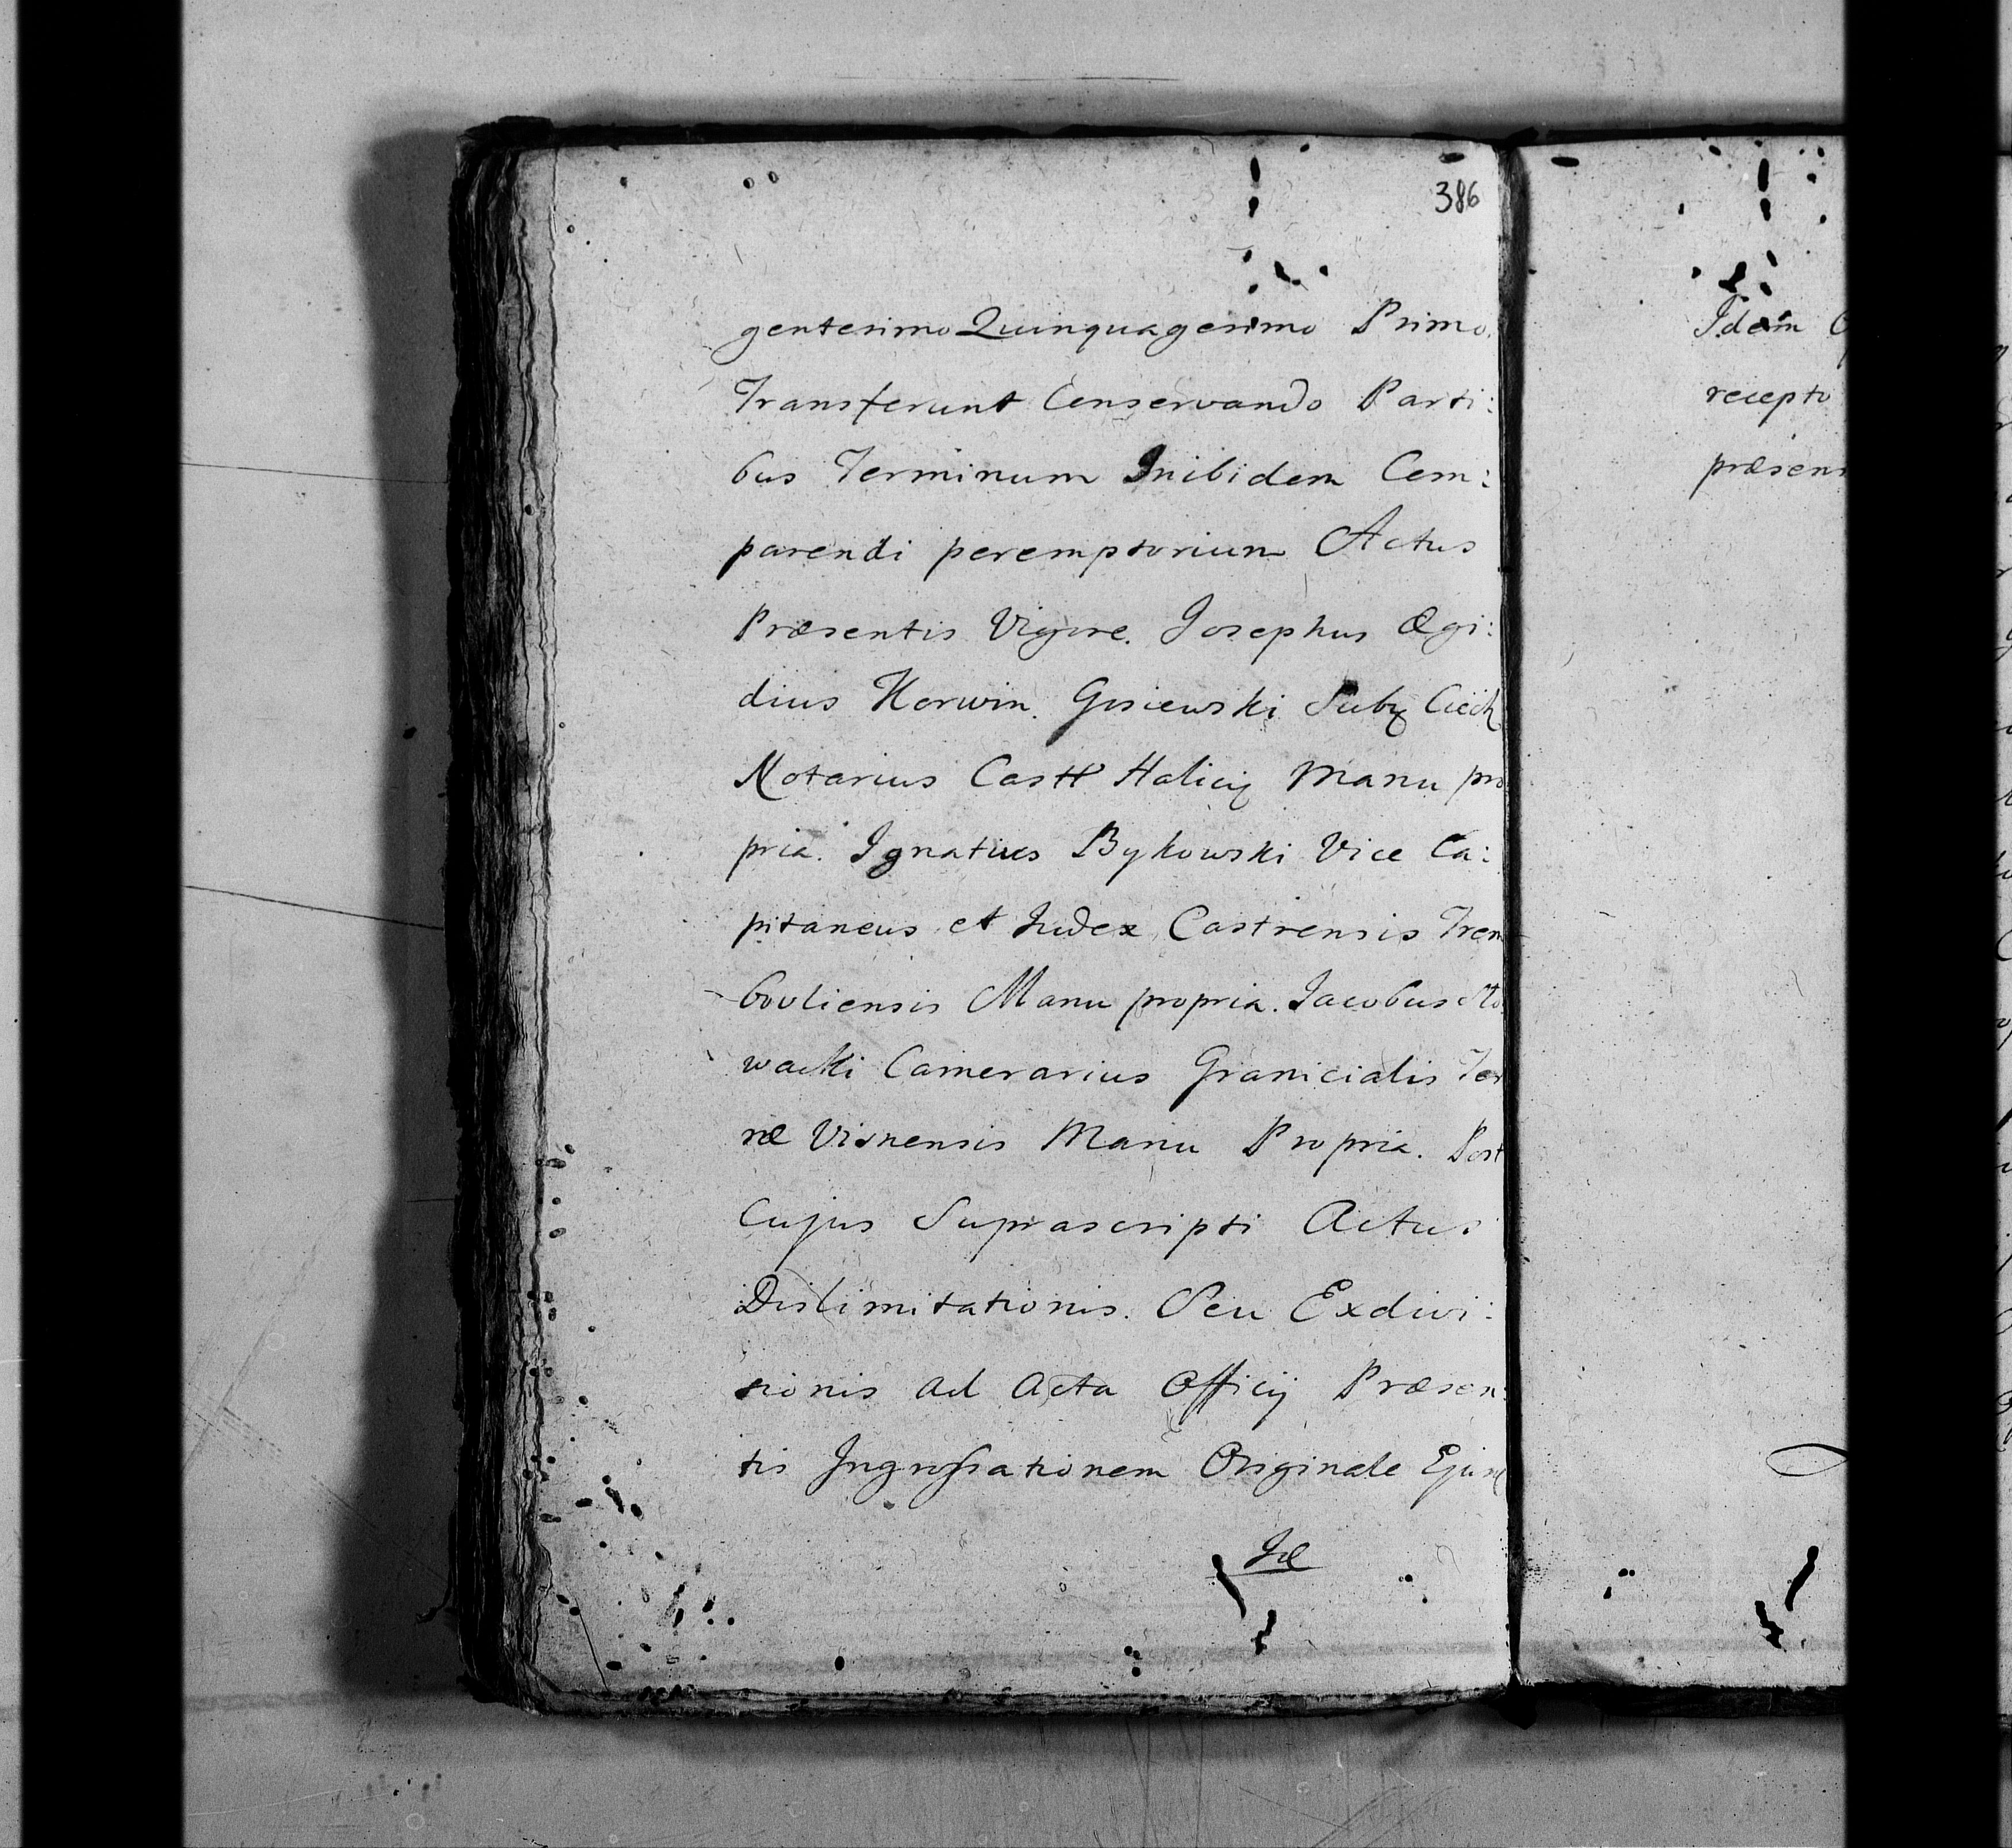 386
gentesimo Quinquagesimo Primo
Transferunt Conservando Parti:
bus Terminum Inibidem Com:
parendi peremptorium Actus
Præsentis Vigore. Josephus Ægi:
dius Korwin. Gosiewski Sub
Notarius Castr Halicij Manu pro
pria. Ignatius Bykowski Vice Ca:
pitaneus et Judex Castrensis Trem
bovliensis Manu propria. Jacobus
wacki Camerarius Granicialis Ter
ræ Visnensis Manu Propria. Post
Cujus Suprascripti Actus
Dislimitationis. Seu Exdivi:
sionis ad Acta Officij Præsen:
tis Ingrossationem Originale
Idem
recepto
præsen